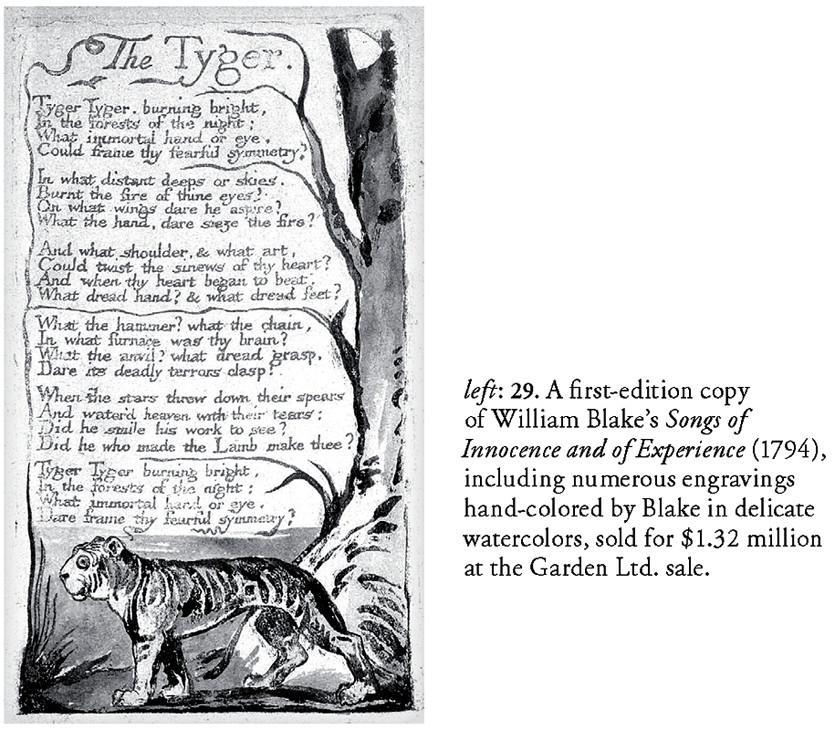 The Tyger.
Tyger Tyger. burning bright,
In the forests of the night;
What immortal hand or eye.
Could frame thy fearful symmetry?
In what distant deeps or skies.
Burnt the fire of thine eyes?
On what wings dare he aspire?
What the hand, dare sieze the fire?
And what shoulder, & what art,
Could twist the sinews of thy heart?
And when thy heart began to beat.
What dread hand? & what dread feet?
What the hammer? what the chain,
In what furnace was thy brain?
What the anvil? what dread grasp.
Dare its deadly terrors clasp?
When the stars threw down their spears
And water'd heaven with their tears:
Did he smile his work to see?
Did he who made the Lamb make thee?
Tyger Tyger burning bright,
In the forests of the night:
What immortal hand or eye.
Dare frame thy fearful symmetry?
left: 29. A first-edition copy
of William Blake's Songs of
Innocence and of Experience (1794),
including numerous engravings
hand-colored by Blake in delicate
watercolors, sold for $1.32 million
at the Garden Ltd. sale.